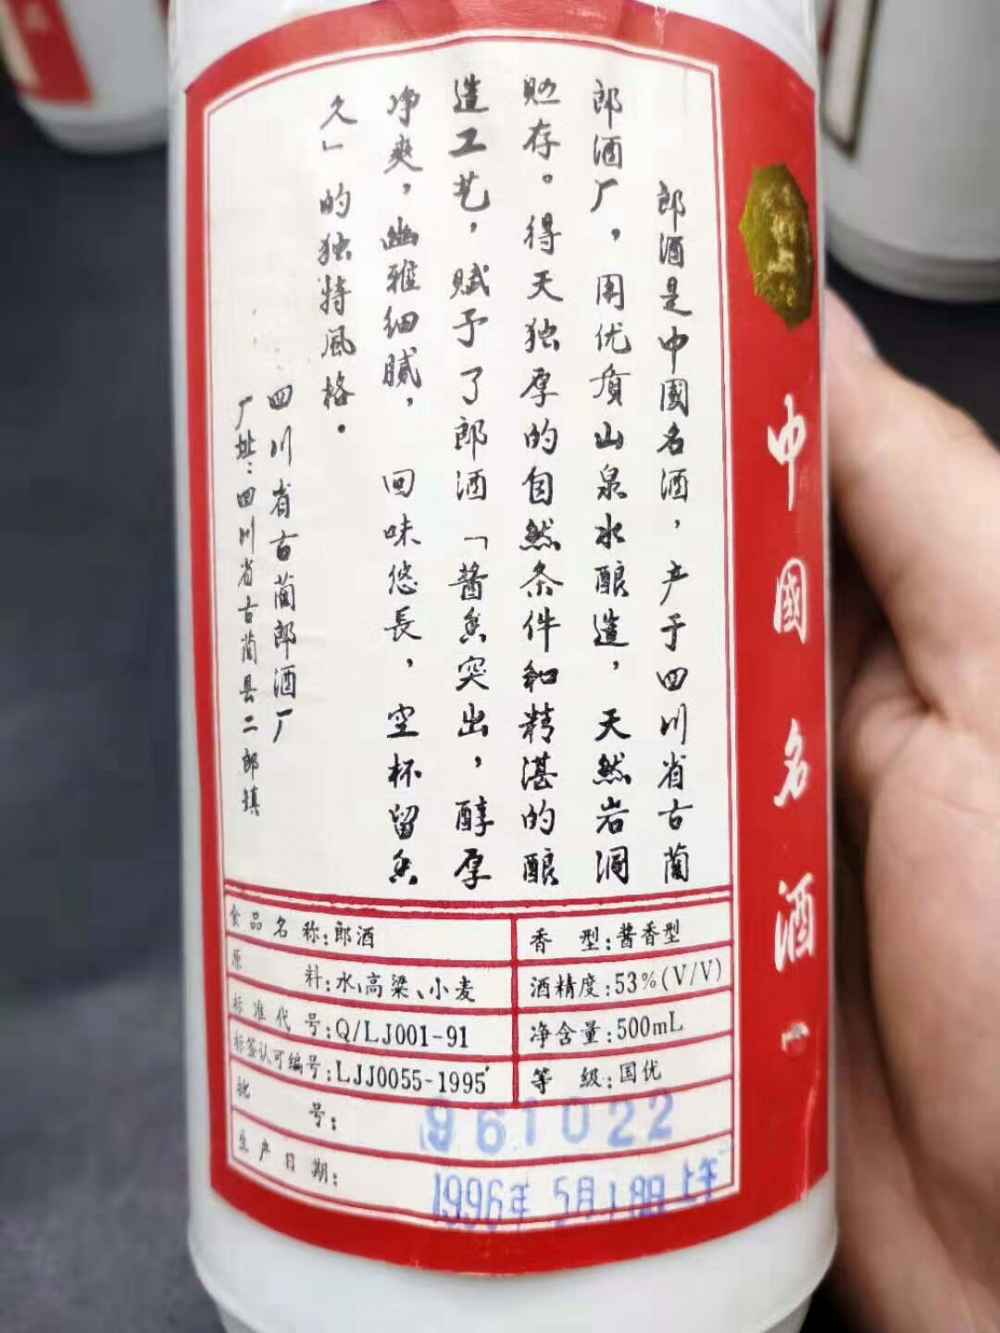 郎酒是中國名酒，产于四川省古蔺
郎酒厂，用优质山泉水酿造，天然岩洞
贮存。得天独厚的自然条件和精湛的酿
造工艺，赋予了郎酒「酱香突出，醇厚
净爽，幽雅细腻，回味悠長，空杯留香
久」的独特風格。
四川省古蔺郎酒厂
厂址：四川省古蔺县二郎镇
食品名称：郎酒
香型：酱香型
原料：水、高粱、小麦
酒精度：53%(V/V)
标准代号：Q/LJ001-91
净含量：500mL
标签认可编号：LJJ0055-1995
等级：国优
批号：961022
生产日期：1996年5月18日上午
中國名酒